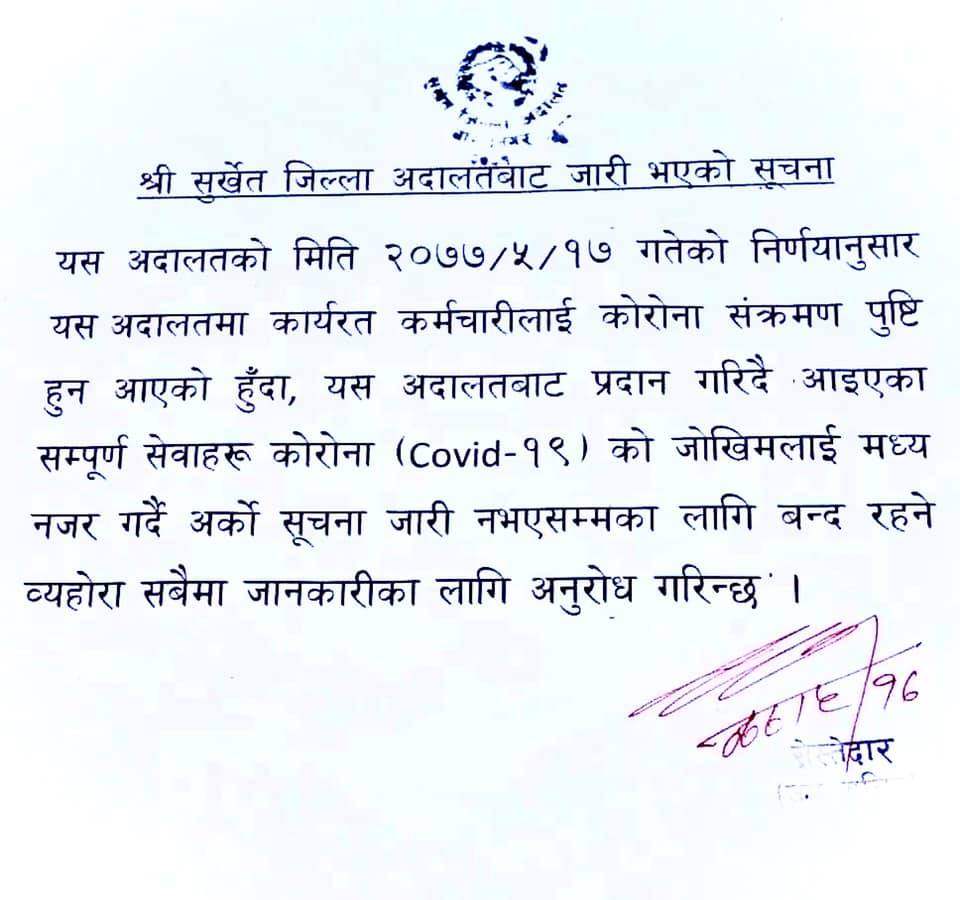 जिल्ला अदालत
श्री सुर्खेत जिल्ला अदालतबाट जारी भएको सूचना
यस अदालतको मिति २०७७/५/१७ गतेको निर्णयानुसार
यस अदालतमा कार्यरत कर्मचारीलाई कोरोना संक्रमण पुष्टि
हुन आएको हुँदा, यस अदालतबाट प्रदान गरिदै आइएका
सम्पूर्ण सेवाहरू कोरोना (Covid-१९) को जोखिमलाई मध्य
नजर गर्दै अर्को सूचना जारी नभएसम्मका लागि बन्द रहने
व्यहोरा सबैमा जानकारीका लागि अनुरोध गरिन्छ ।
स्रेस्तेदार